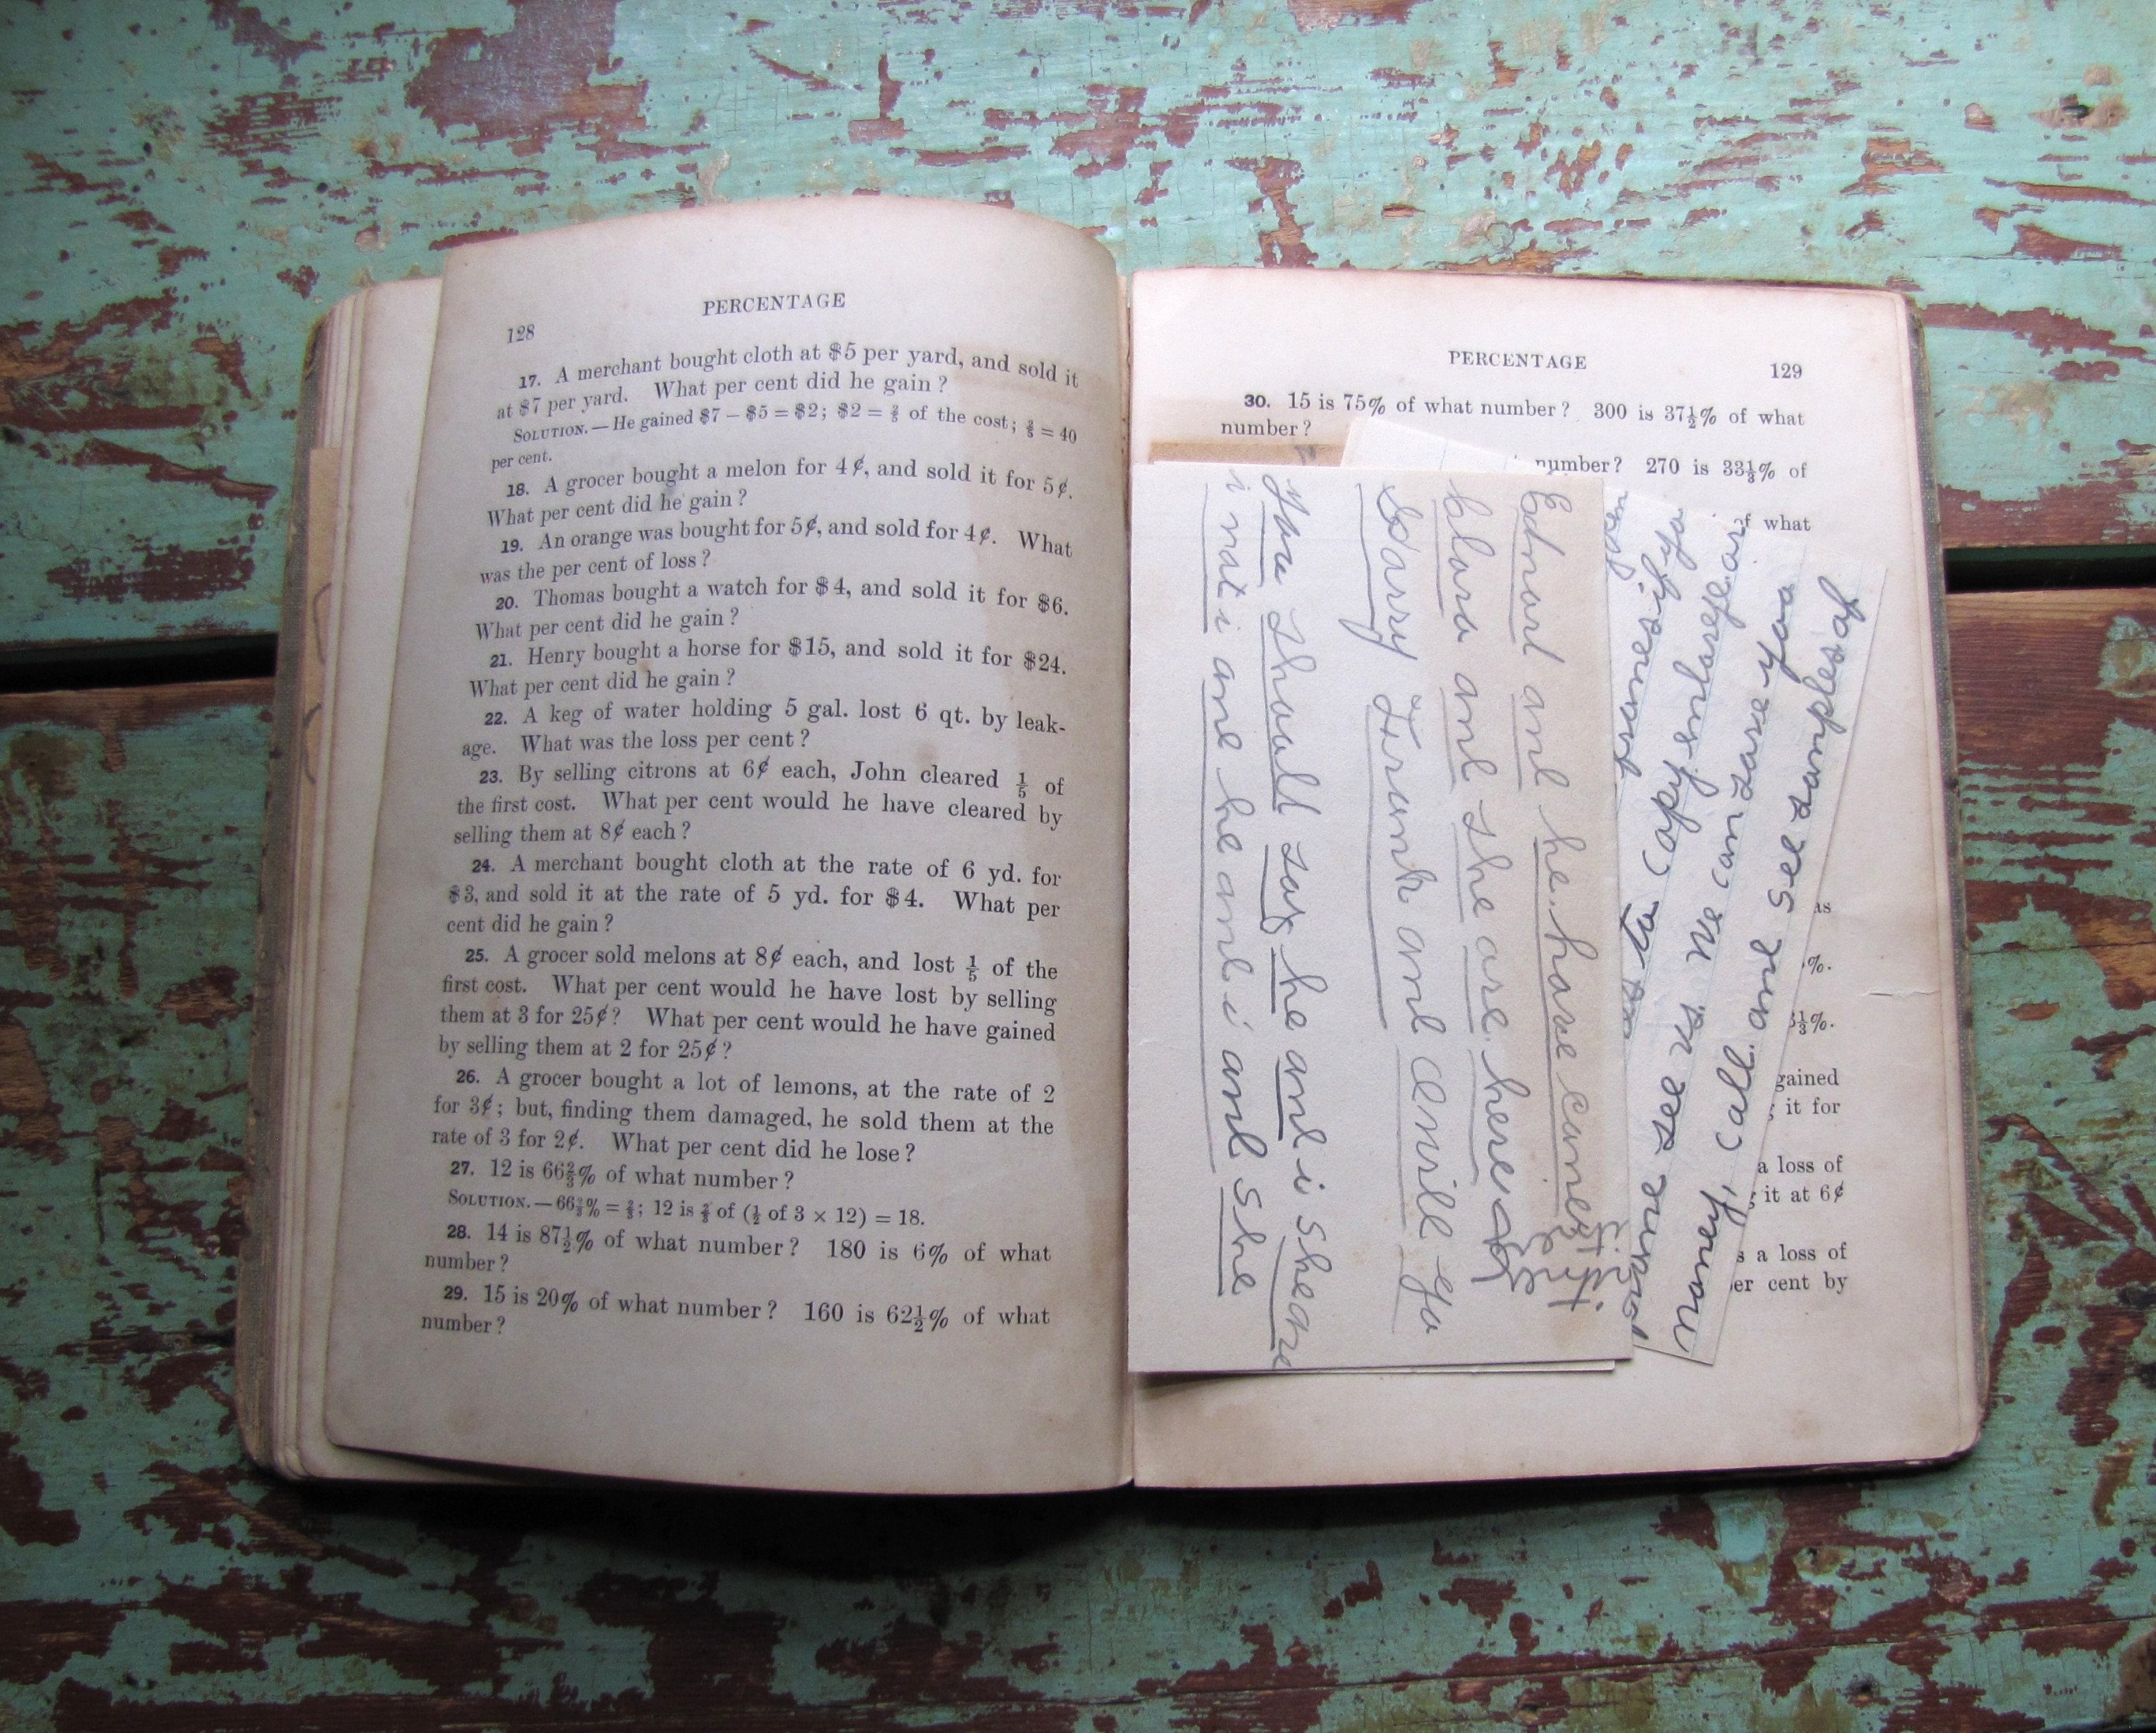 PERCENTAGE
128
17. A merchant bought cloth at $5 per yard, and sold it
at $7 per yard. What per cent did he gain?
SOLUTION. — He gained $7 – $5 = $2; $2 = ⅖ of the cost; ⅖ = 40
per cent.
18. A grocer bought a melon for 4¢, and sold it for 5¢.
What per cent did he gain?
19. An orange was bought for 5¢, and sold for 4¢. What
was the per cent of loss?
20. Thomas bought a watch for $4, and sold it for $6.
What per cent did he gain?
21. Henry bought a horse for $15, and sold it for $24.
What per cent did he gain?
22. A keg of water holding 5 gal. lost 6 qt. by leak-
age. What was the loss per cent?
23. By selling citrons at 6¢ each, John cleared ⅕ of
the first cost. What per cent would he have cleared by
selling them at 8¢ each?
24. A merchant bought cloth at the rate of 6 yd. for
$3, and sold it at the rate of 5 yd. for $4. What per
cent did he gain?
25. A grocer sold melons at 8¢ each, and lost ⅕ of the
first cost. What per cent would he have lost by selling
them at 3 for 25¢? What per cent would he have gained
by selling them at 2 for 25¢?
26. A grocer bought a lot of lemons, at the rate of 2
for 3¢; but, finding them damaged, he sold them at the
rate of 3 for 2¢. What per cent did he lose?
27. 12 is 66⅔% of what number?
SOLUTION. — 66⅔% = ⅔; 12 is ⅔ of (½ of 3 × 12) = 18.
28. 14 is 87½% of what number? 180 is 6% of what
number?
29. 15 is 20% of what number? 160 is 62½% of what
number?
PERCENTAGE 129
30. 15 is 75% of what number? 300 is 37½% of what
number?
number? 270 is 33⅓% of
of what
as
%.
3⅓%.
gained
it for
a loss of
it at 6¢
s a loss of
per cent by
Edward and he have come
Clara and she are here
Harry Frank and will go
you should say he and i share
i nat i and he and i and she
to copy enlarge or
come see us. We can save you
money, call and see samples of